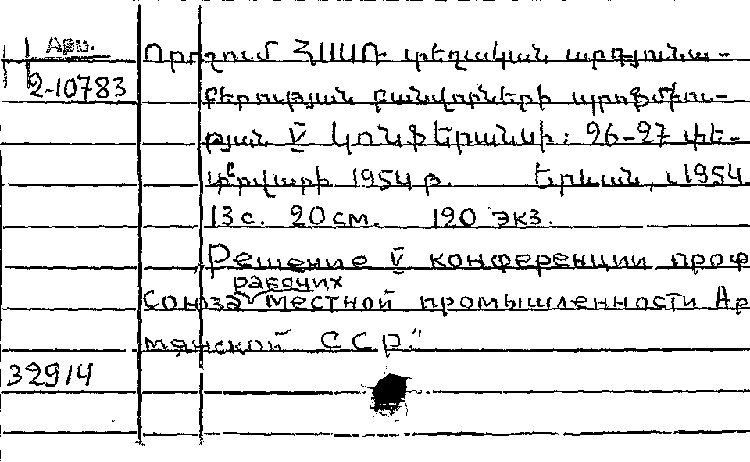 Арм.
2-10783
Որոշում ՀՍՍՌ տեղական արդյունա-
բերության բանվորների պրոֆմիու-
թյան V կոնֆերանսի: 26-27 փե-
տրվարի 1954 թ. Երևան, 1954
13 с. 20 см. 120 экз.
Решение V конференции проф
рабочих
союза местной промышленности Ар
мянской ССР."
32914